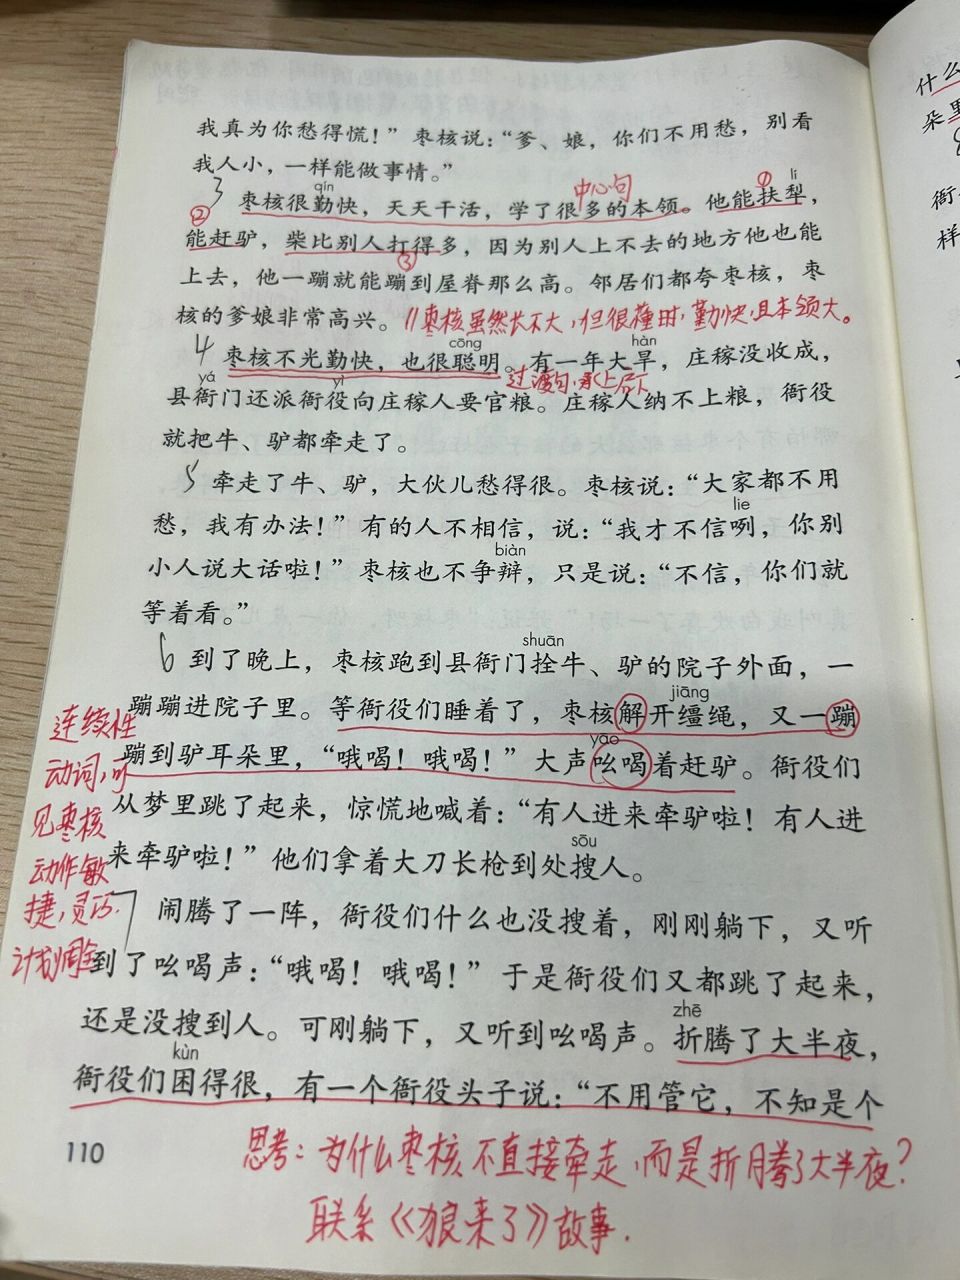 我真为你愁得慌！”枣核说：“爹、娘，你们不用愁，别看
我人小，一样能做事情。”
3
中心句
①
qín
lí
枣核很勤快，天天干活，学了很多的本领。他能扶犁，
②
能赶驴，柴比别人打得多，因为别人上不去的地方他也能
③
上去，他一蹦就能蹦到屋脊那么高。邻居们都夸枣核，枣
核的爹娘非常高兴。
//枣核虽然长不大，但很懂事，勤快，且本领大。
4
cōng
hàn
枣核不光勤快，也很聪明。有一年大旱，庄稼没收成，
过渡句，承上启下
yá
yì
县衙门还派衙役向庄稼人要官粮。庄稼人纳不上粮，衙役
就把牛、驴都牵走了。
5
牵走了牛、驴，大伙儿愁得很。枣核说：“大家都不用
lie
愁，我有办法！”有的人不相信，说：“我才不信咧，你别
biàn
小人说大话啦！”枣核也不争辩，只是说：“不信，你们就
等着看。”
6
shuān
到了晚上，枣核跑到县衙门拴牛、驴的院子外面，一
jiāng
蹦蹦进院子里。等衙役们睡着了，枣核解开缰绳，又一蹦
yāo
蹦到驴耳朵里，“哦喝！哦喝！”大声吆喝着赶驴。衙役们
从梦里跳了起来，惊慌地喊着：“有人进来牵驴啦！有人进
sōu
来牵驴啦！”他们拿着大刀长枪到处搜人。
连续性
动词，可
见枣核
动作敏
捷，灵巧.
计划周全
7
闹腾了一阵，衙役们什么也没搜着，刚刚躺下，又听
到了吆喝声：“哦喝！哦喝！”于是衙役们又都跳了起来，
还是没搜到人。可刚躺下，又听到吆喝声。折腾了大半夜，
zhē
kùn
衙役们困得很，有一个衙役头子说：“不用管它，不知是个
110
思考：为什么枣核不直接牵走，而是折腾了大半夜？
联系《狼来了》故事.
什么
朵里
衙
样